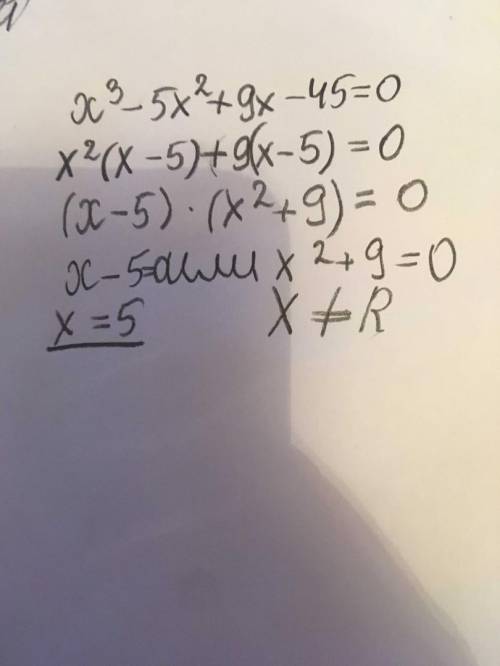 x³ - 5x² + 9x - 45 = 0
x²(x - 5) + 9(x - 5) = 0
(x - 5) · (x² + 9) = 0
x - 5 = 0 или x² + 9 = 0
x = 5 X ≠ R